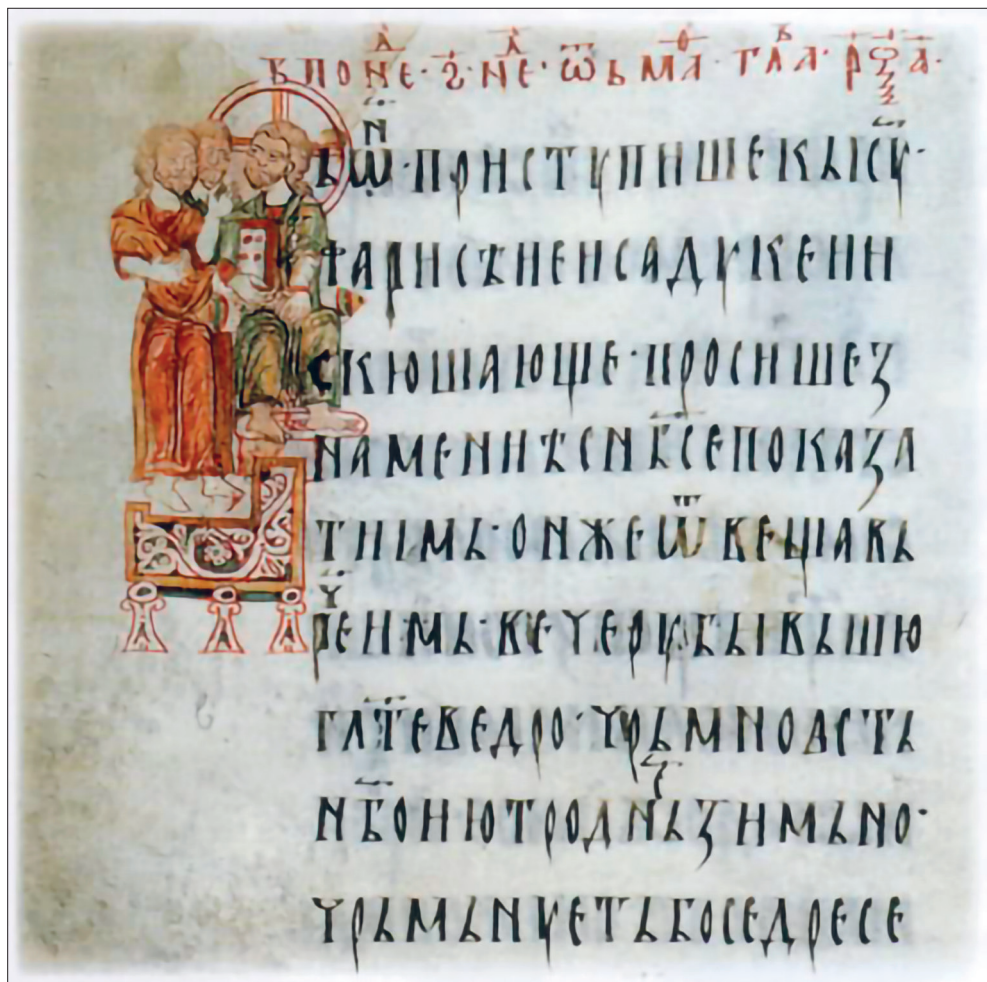 в поне҃ · г҃ · не҃ · ѿь ма҃ · гла҃ · ро҃а ·
ьѡ҃н · пристꙋпише кь іс҃ꙋ ·
фарисѣне и садꙋкеии
скюшающе · просише з
намениѣ с н҃бсе показа
ти імь · онже ѿвеща вь
реимь · вечерꙋ бывьшю
гл҃те ведро · чрьмноастъ
н҃бо ню тро дн҃ь зимьно ·
чрьмьнꙋетьбоседресе